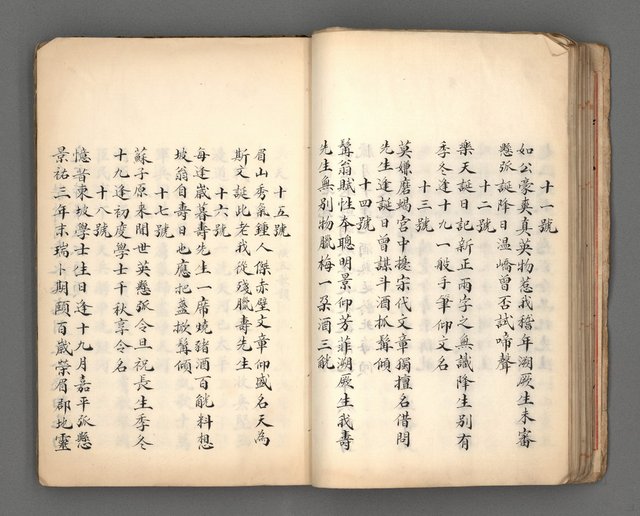 十一號
如公豪爽真英物惹我稽年溯厥生未審
懸弧誕降日温嶠曾否試啼聲
十二號
樂天誕日記新正兩字之無識降生别有
季冬逢十九一般手筆仰文名
十三號
英嫌磨蝎宮中擾宋代文章獨擅名借問
先生逢誕日曾謀斗酒抵髯傾
十四號
髯翁賦性本聰明景仰芳菲溯厥生我壽
先生無别物臘梅一朶酒三觥
十五號
眉山秀氣鍾人傑赤壁文章仰盛名天為
斯文誕此老我從殘臘壽先生
十六號
每逢歲暮壽先生一席燒豬酒百觥料想
坡翁自壽日也應把盞掀髯傾
十七號
蘇子原来間世英懸弧令旦祝長生季冬
十九逢初度學士千秋享令名
十八號
憶昔東坡學士生日逢十九月嘉平弧懸
景祐三年末瑞卜期頤百歲榮眉郡地靈